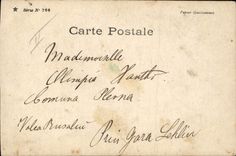 ★ Série Nº 704
Carte Postale
Mademoiselle
Olimpia
Comuna Plevna
Valea Rusului
Prin Gara Lehliu